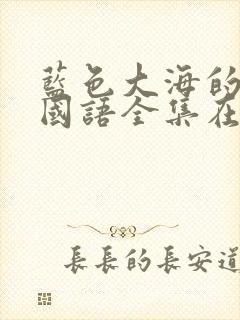 藍色大海的
國語全集在
長長的長安道